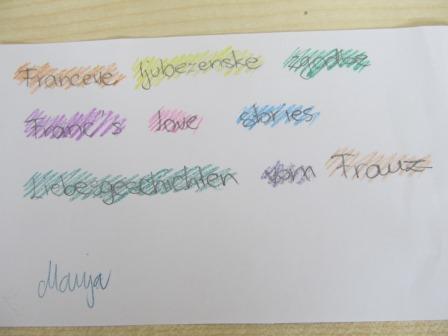 Franceve ljubezenske zgodbe
Franc's love stories
Liebesgeschichten vom Franz
Marija